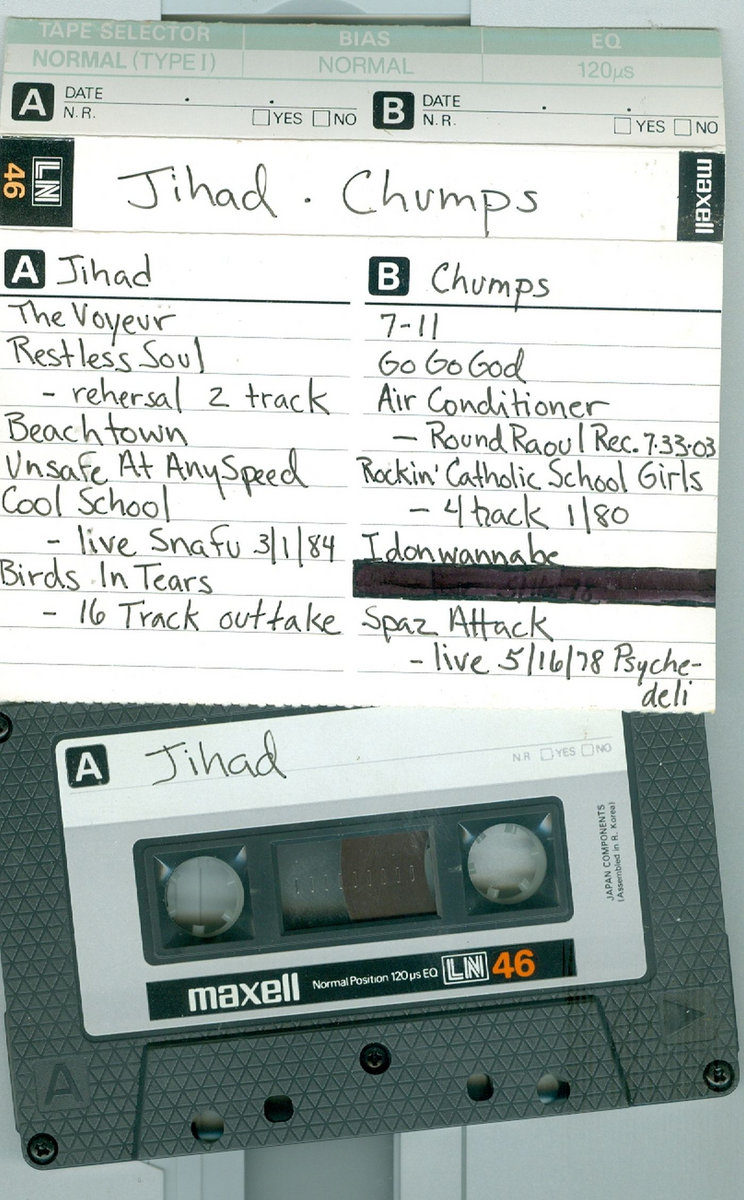 TAPE SELECTOR BIAS EQ
NORMAL (TYPE I) NORMAL 120µs
A DATE
N.R. YES NO
B DATE
N.R. YES NO
LN 46
Jihad . Chumps
maxell
A Jihad
The Voyeur
Restless Soul
- rehersal 2 track
Beachtown
Unsafe At Any Speed
Cool School
- live Snafu 3/1/84
Birds In Tears
- 16 Track outtake
B Chumps
7-11
Go Go God
Air Conditioner
- Round Raoul Rec. 7.33.03
Rockin' Catholic School Girls
- 4 track 1/80
Idonwannabe
Spaz Attack
- live 5/16/78 Psyche-
deli
A Jihad
N.R YES NO
JAPAN COMPONENTS
(Assembled in R. Korea)
maxell Normal Position 120 µs EQ LN 46
A